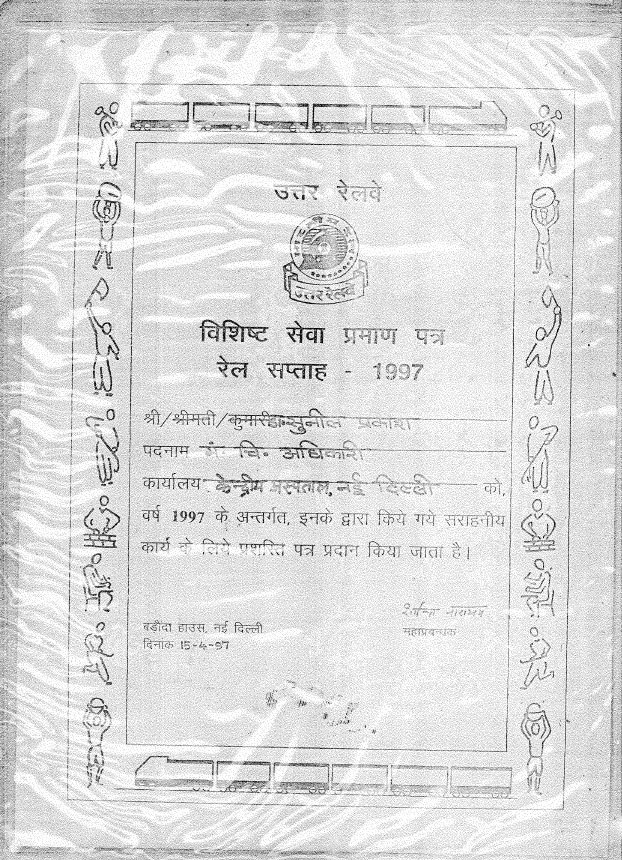 उत्तर रेलवे
उत्तर रेलवे
विशिष्ट सेवा प्रमाण पत्र
रेल सप्ताह - 1997
श्री/श्रीमती/कुमारी डा॰ सुनील प्रकाश
पदनाम मं॰ चि॰ अधिकारी
कार्यालय केन्द्रीय अस्पताल, नई दिल्ली को,
वर्ष 1997 के अन्तर्गत, इनके द्वारा किये गये सराहनीय
कार्य के लिये प्रशस्ति पत्र प्रदान किया जाता है।
बड़ौदा हाउस, नई दिल्ली
दिनांक 15-4-97
महाप्रबन्धक